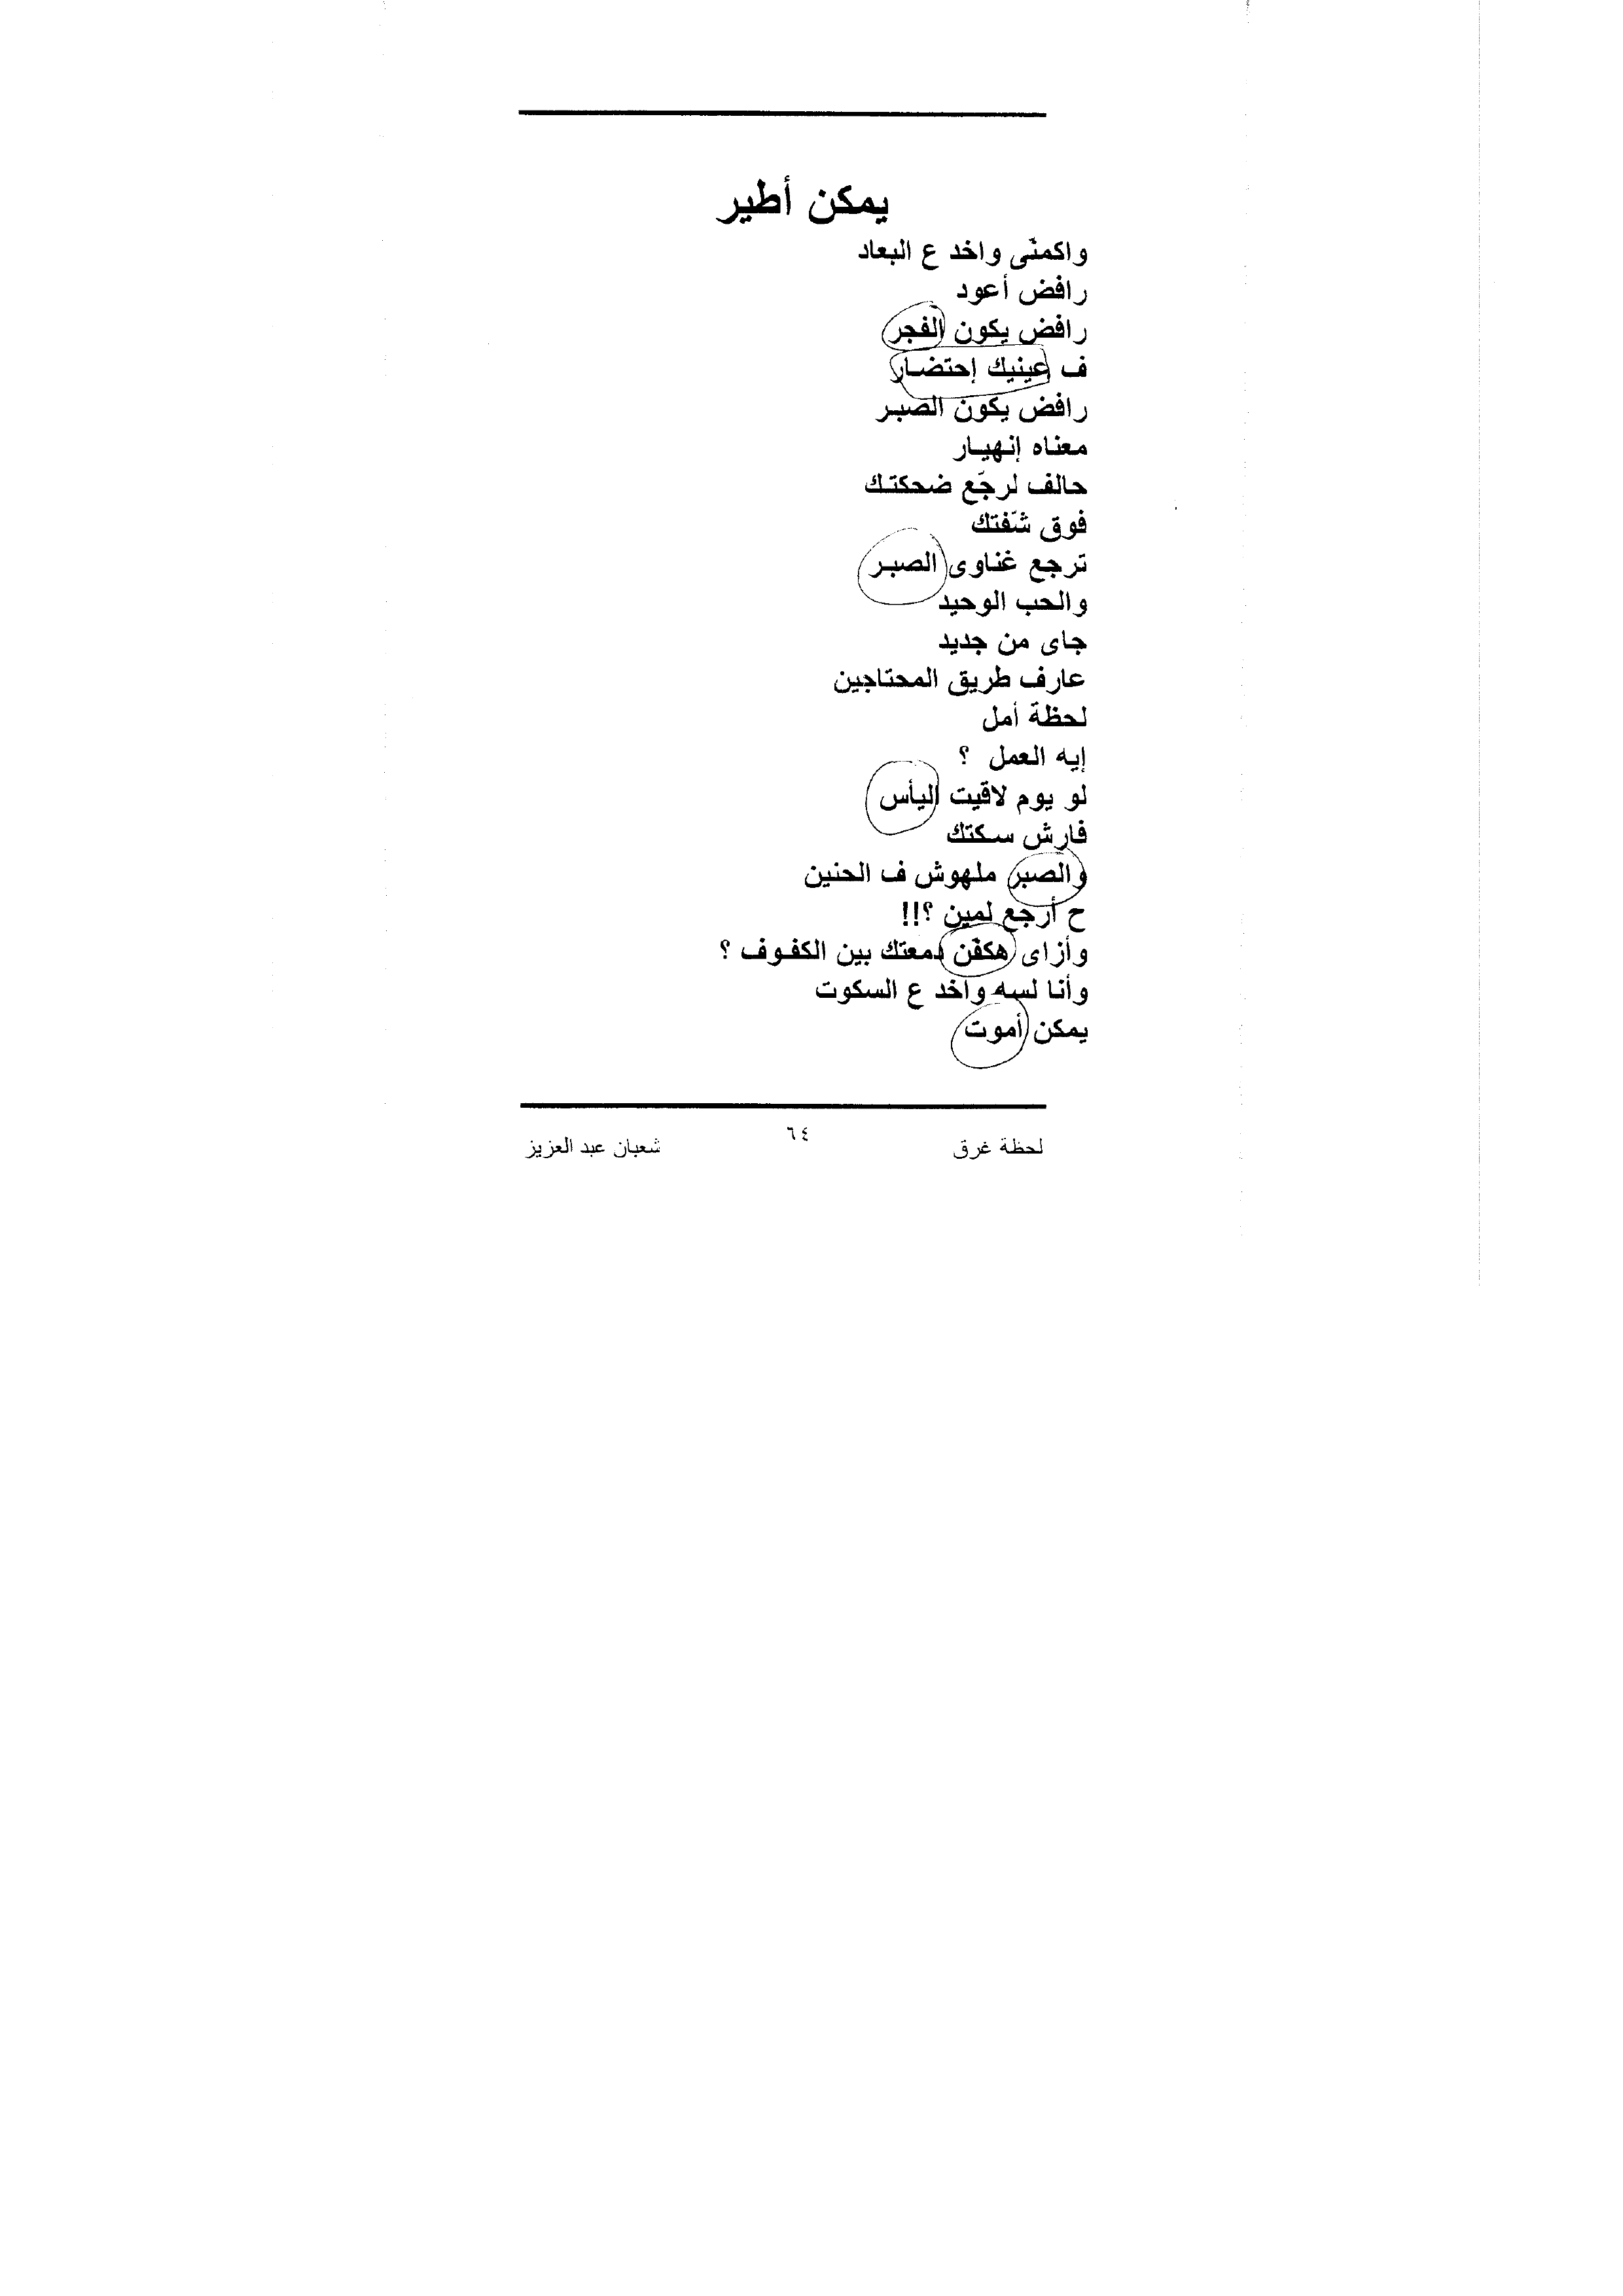 يمكن أطير
واكمنّى واخد ع البعاد
رافض أعود
رافض يكون الفجر
ف عينيك إحتضار
رافض يكون الصبر
معناه إنهيار
حالف لرجّع ضحكتك
فوق شفّتك
ترجع غناوى الصبر
والحب الوحيد
جاى من جديد
عارف طريق المحتاجين
لحظة أمل
إيه العمل ؟
لو يوم لاقيت اليأس
فارش سكتك
والصبر ملهوش ف الحنين
ح أرجع لمين ؟!!
وأزاى هكفّن دمعتك بين الكفوف ؟
وأنا لسه واخد ع السكوت
يمكن أموت
لحظة غرق ٦٤ شعبان عبد العزيز